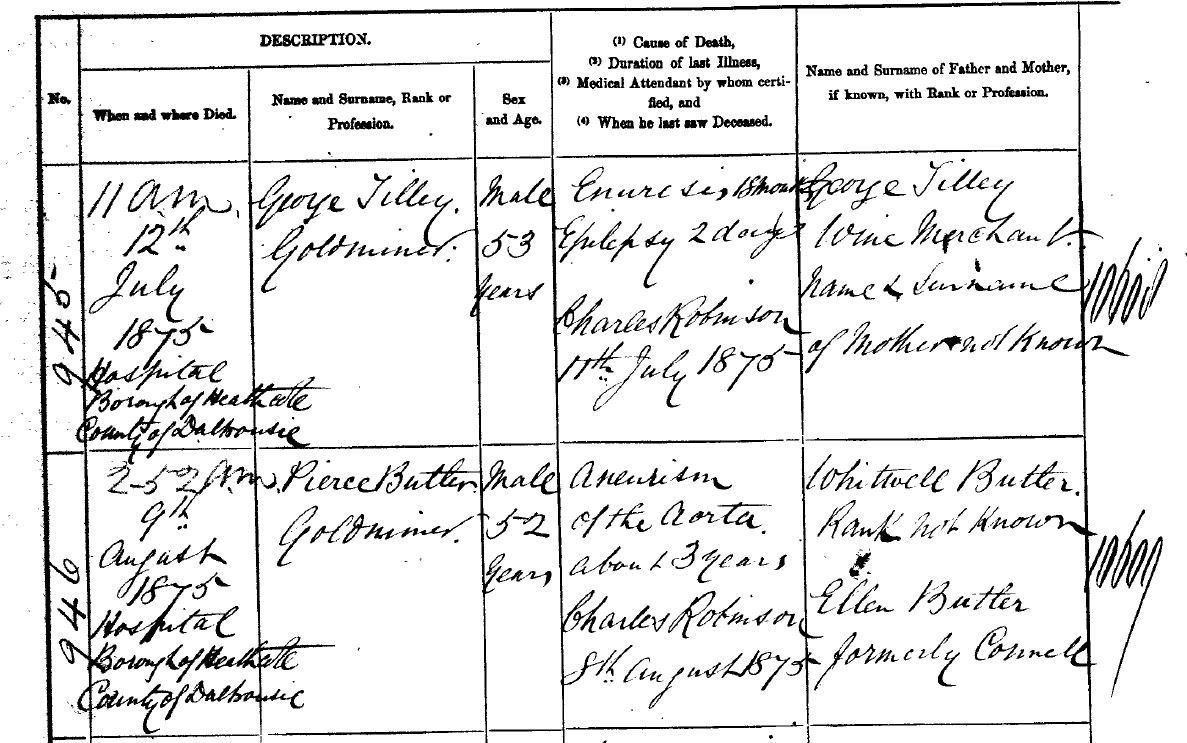 DESCRIPTION.
No.
When and where Died.
Name and Surname, Rank or
Profession.
Sex
and Age.
(1) Cause of Death,
(2) Duration of last Illness,
(3) Medical Attendant by whom certi-
fied, and
(4) When he last saw Deceased.
Name and Surname of Father and Mother,
if known, with Rank or Profession.
945
11 am.
12th
July
1875
Hospital
Borough of Heathcote
County of Dalhousie
George Tilley.
Goldminer.
Male
53
Years
Enuresis, 18 months
Epilepsy 2 days
Charles Robinson
11th July 1875
George Tilley
Wine Merchant.
Name & Surname
of Mother not Known
946
2-52
9th
August
1875
Hospital
Borough of Heathcote
County of Dalhousie
Pierce Butler.
Goldminer.
Male
52
Years
Aneurism
of the Aorta.
about 3 years
Charles Robinson
8th August 1875
Whitwell Butler.
Rank not Known
Ellen Butler
formerly Connell